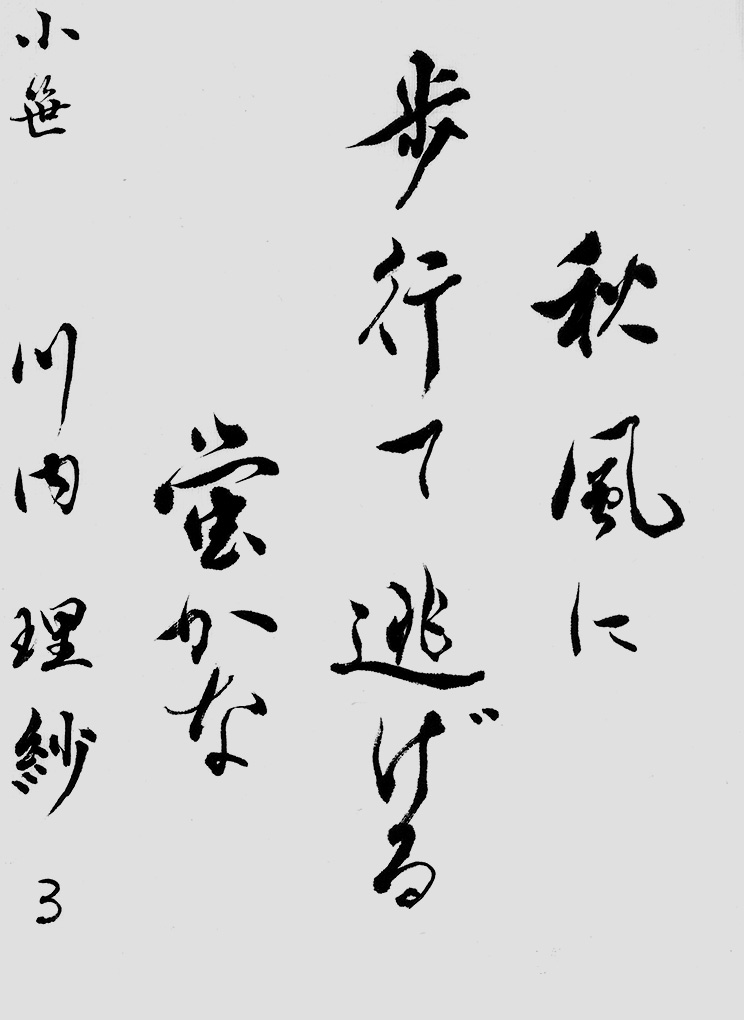 秋風に
歩行て逃げる
蛍かな
小笹 川内 理紗 3